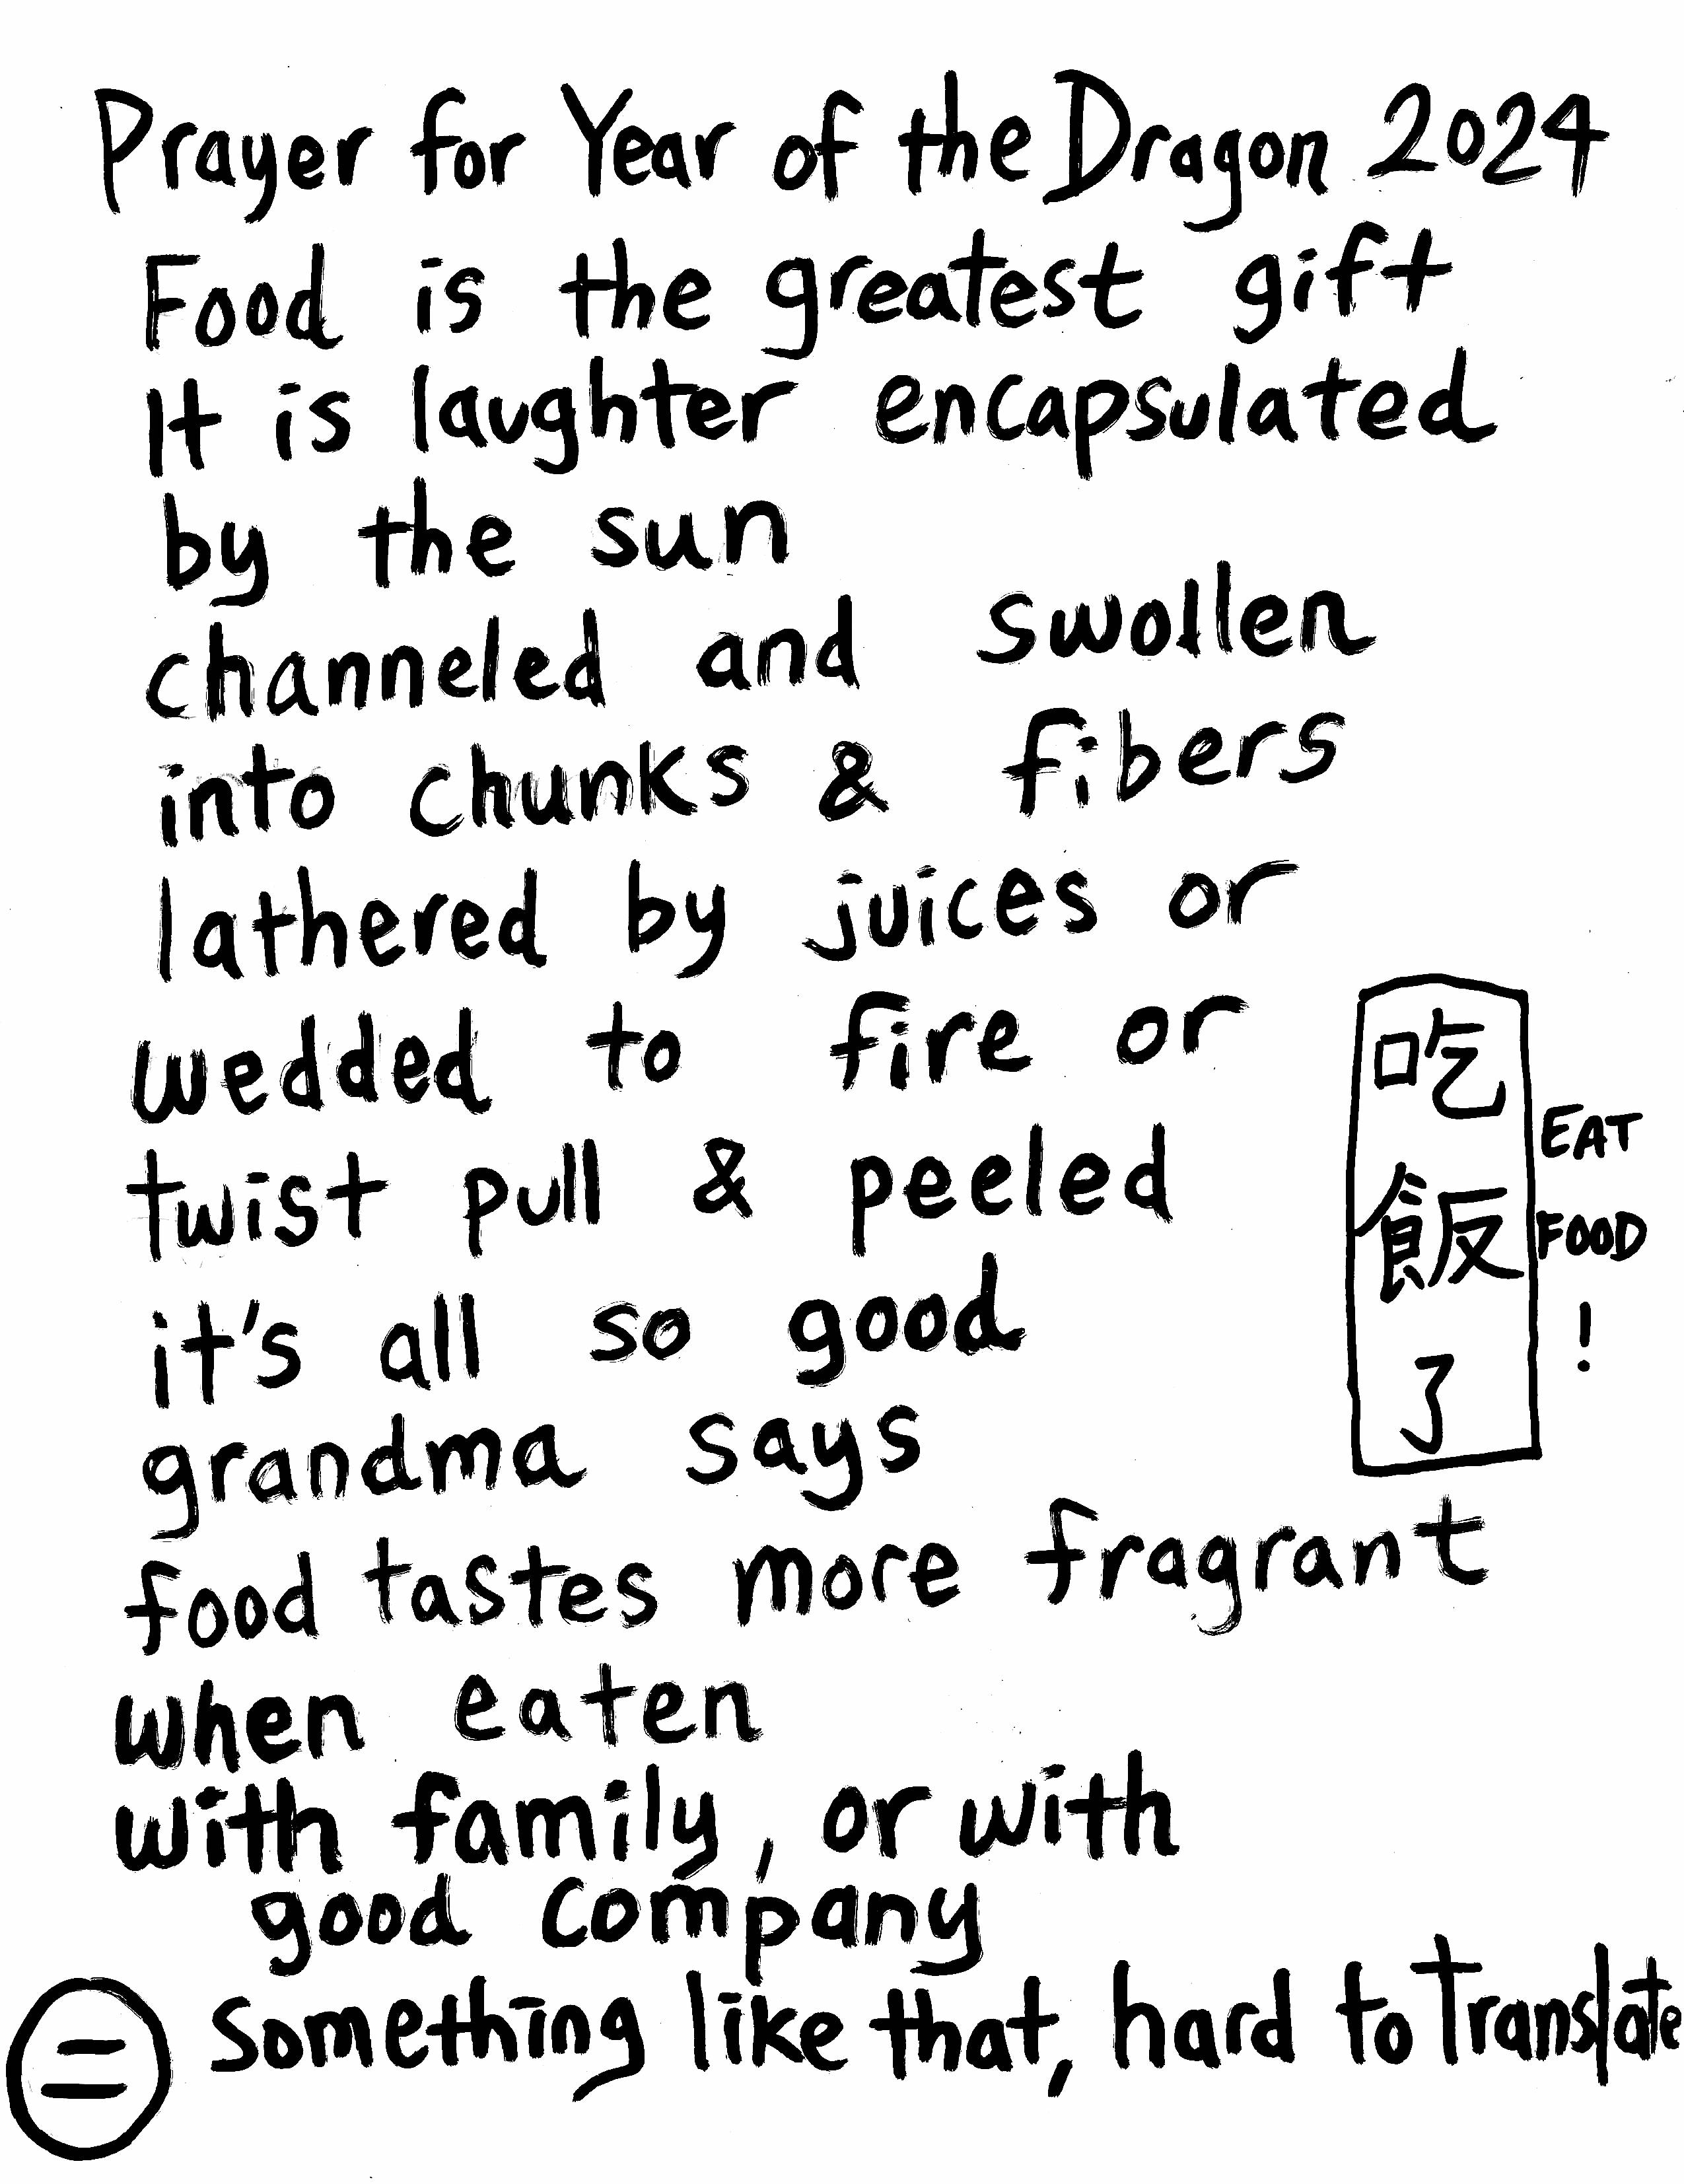 Prayer for Year of the Dragon 2024
Food is the greatest gift
It is laughter encapsulated
by the sun
channeled and swollen
into chunks & fibers
lathered by juices or
wedded to fire or
twist pull & peeled
it's all so good
grandma says
food tastes more fragrant
when eaten
with family, or with
good company
something like that, hard to translate
吃
飯
了
EAT
FOOD
!
二